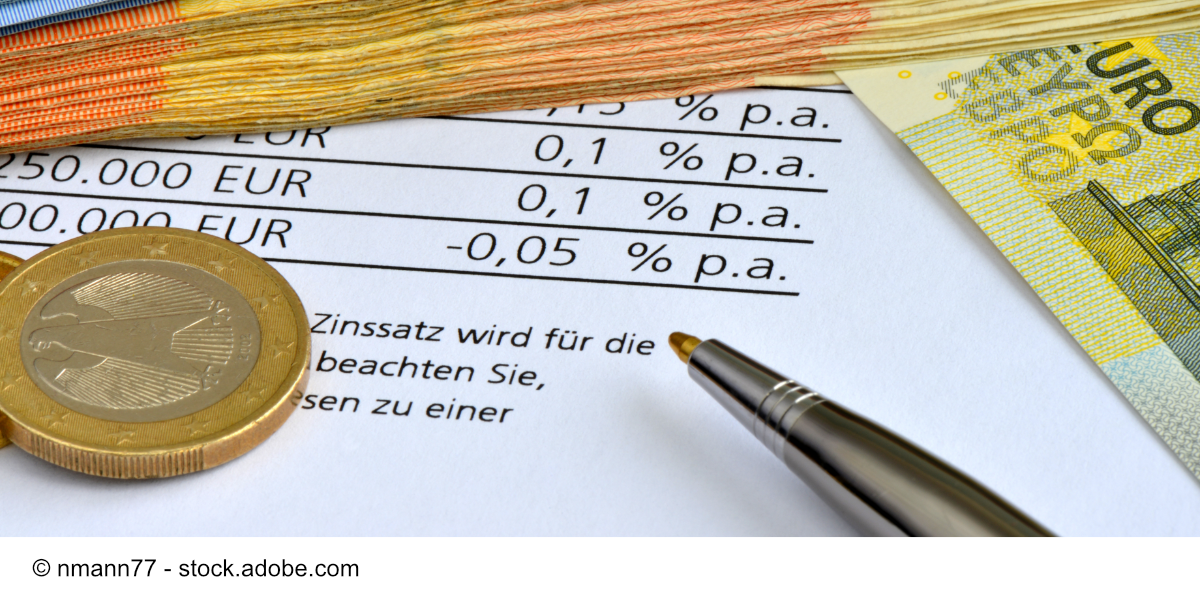 % p.a.
EUR 0,1 % p.a.
250.000 EUR 0,1 % p.a.
00.000 EUR -0,05 % p.a.
Zinssatz wird für die
beachten Sie,
esen zu einer
EURO
ΕΥΡΩ
ЕВРО
5
2002
© nmann77 - stock.adobe.com